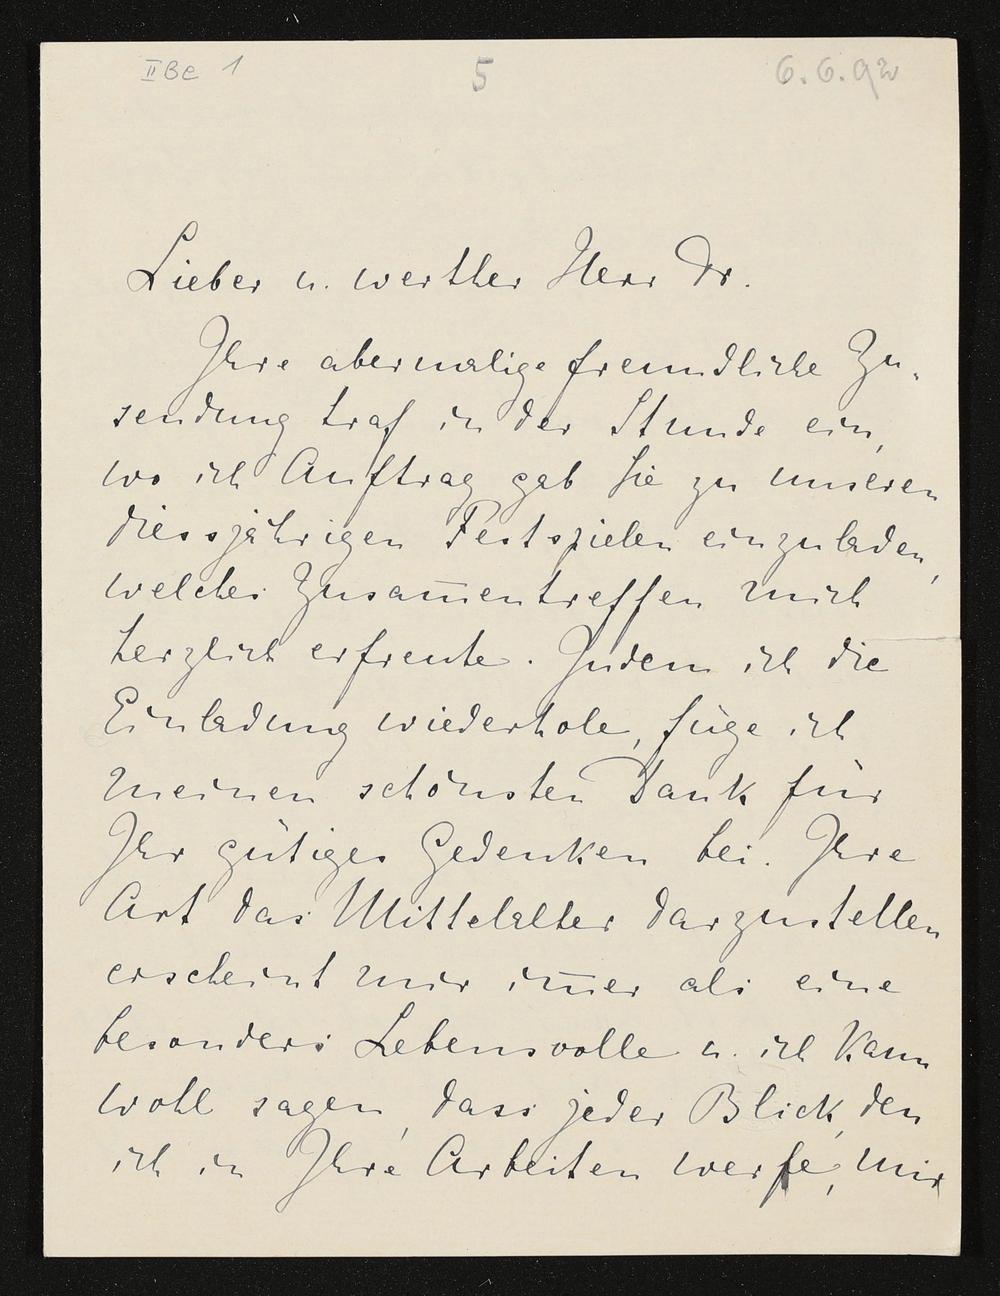 II Be 1
5
6.6.92
Lieber u. werther Herr Dr.
Ihre abermalige freundliche Zu-
sendung traf in der Stunde ein,
wo ich Auftrag gab Sie zu unseren
diessjährigen Festspielen einzuladen,
welches Zusam̄entreffen mich
herzlich erfreute. Indem ich die
Einladung wiederhole, füge ich
meinen schönsten Dank für
Ihr gütiges Gedenken bei. Ihre
Art das Mittelalter darzustellen
erscheint mir im̄er als eine
besonders Lebensvolle u. ich kann
wohl sagen, dass jeder Blick, den
ich in Ihre Arbeiten werfe, mir